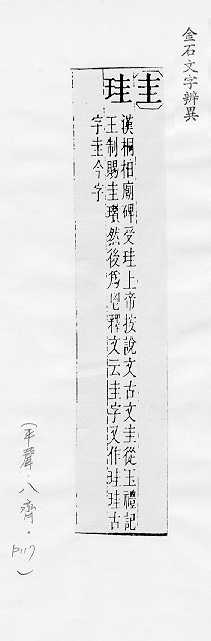 金石文字辨異
圭
珪
漢桐柏廟碑受珪上帝按說文古文圭從玉禮記
王制賜圭瓚然後為鬯釋文云圭字又作珪珪古
字圭今字
(平聲.八齊.p117)